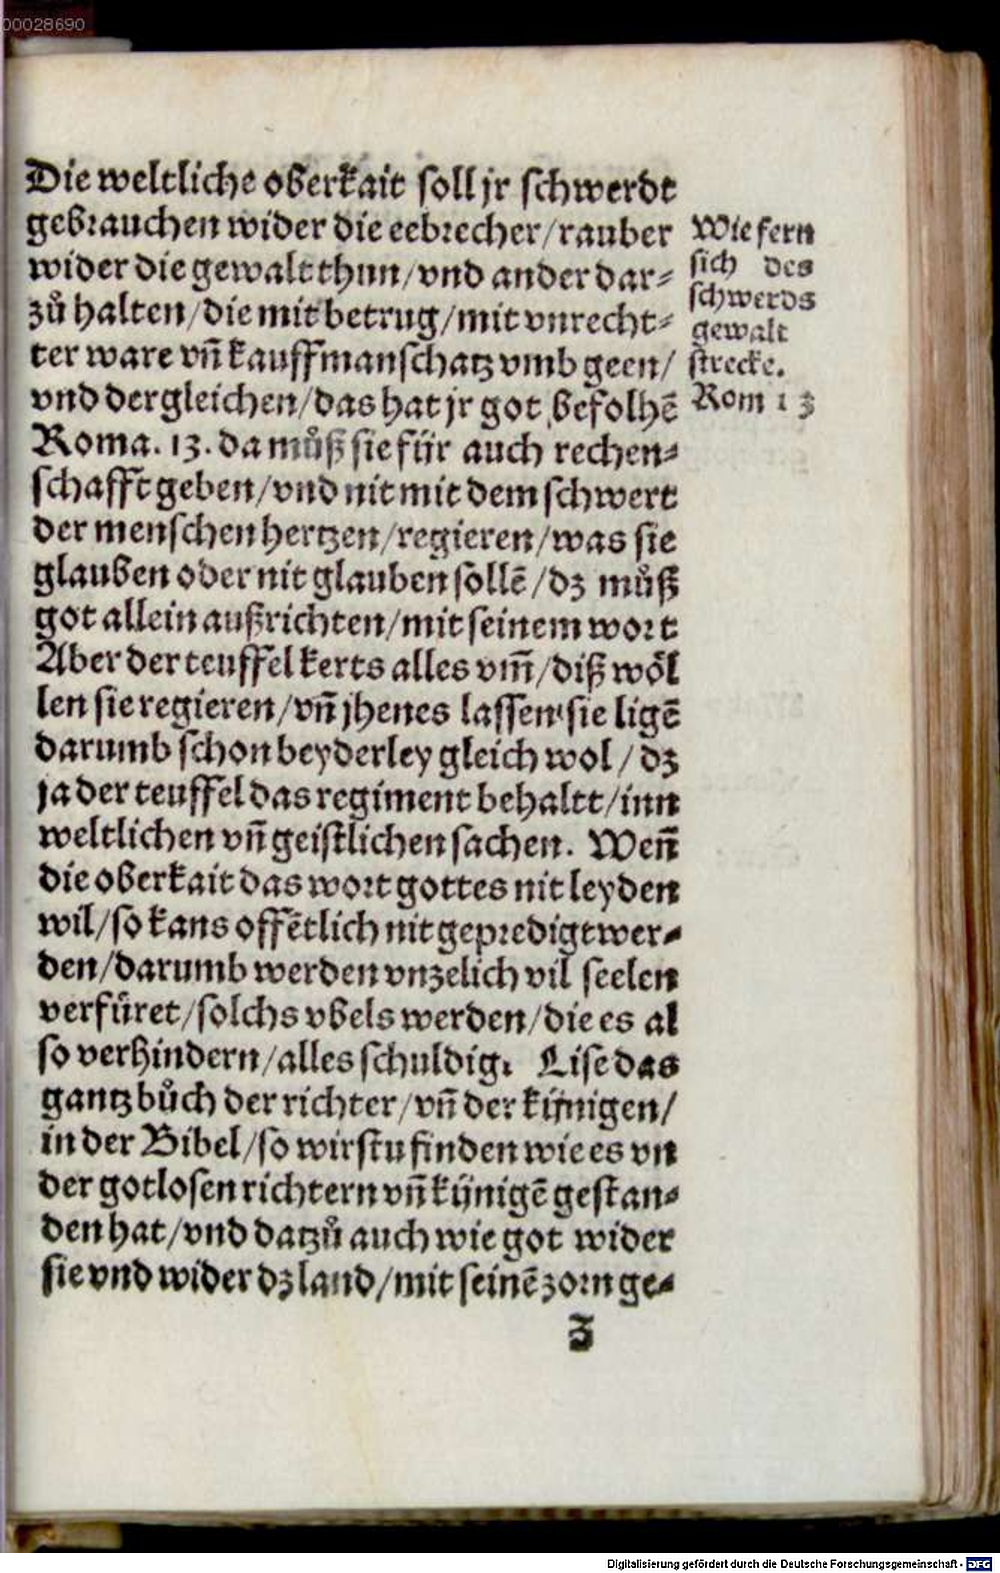 00028690
Die weltliche oberkait soll jr schwerdt
gebrauchen wider die eebrecher/rauber
wider die gewalt thun/vnd ander dar⸗
zů halten/die mit betrug/mit vnrecht⸗
ter ware vn̄ kauffmanschatz vmb geen/
vnd dergleichen/das hat jr got befolhē
Roma. 13. da můß sie für auch rechen⸗
schafft geben/vnd nit mit dem schwert
der menschen hertzen/regieren/was sie
glauben oder nit glauben sollē/dz můß
got allein außrichten/mit seinem wort
Aber der teuffel kerts alles vm̄/diß wöl
len sie regieren/vn̄ jhenes lassen sie ligē
darumb schon beyderley gleich wol/dz
ja der teuffel das regiment behaltt/inn
weltlichen vn̄ geistlichen sachen. Wen̄
die oberkait das wort gottes nit leyden
wil/so kans offētlich nit gepredigt wer⸗
den/darumb werden vnzelich vil seelen
verfüret/solchs vbels werden/die es al
so verhindern/alles schuldig. Lise das
gantz bůch der richter/vn̄ der künigen/
in der Bibel/so wirstu finden wie es vn
der gotlosen richtern vn̄ künigē gestan⸗
den hat/vnd datzů auch wie got wider
sie vnd wider dz land/mit seinē zorn ge⸗
Wie fern
sich des
schwerds
gewalt
strecke.
Rom 13
3
Digitalisierung gefördert durch die Deutsche Forschungsgemeinschaft - DFG